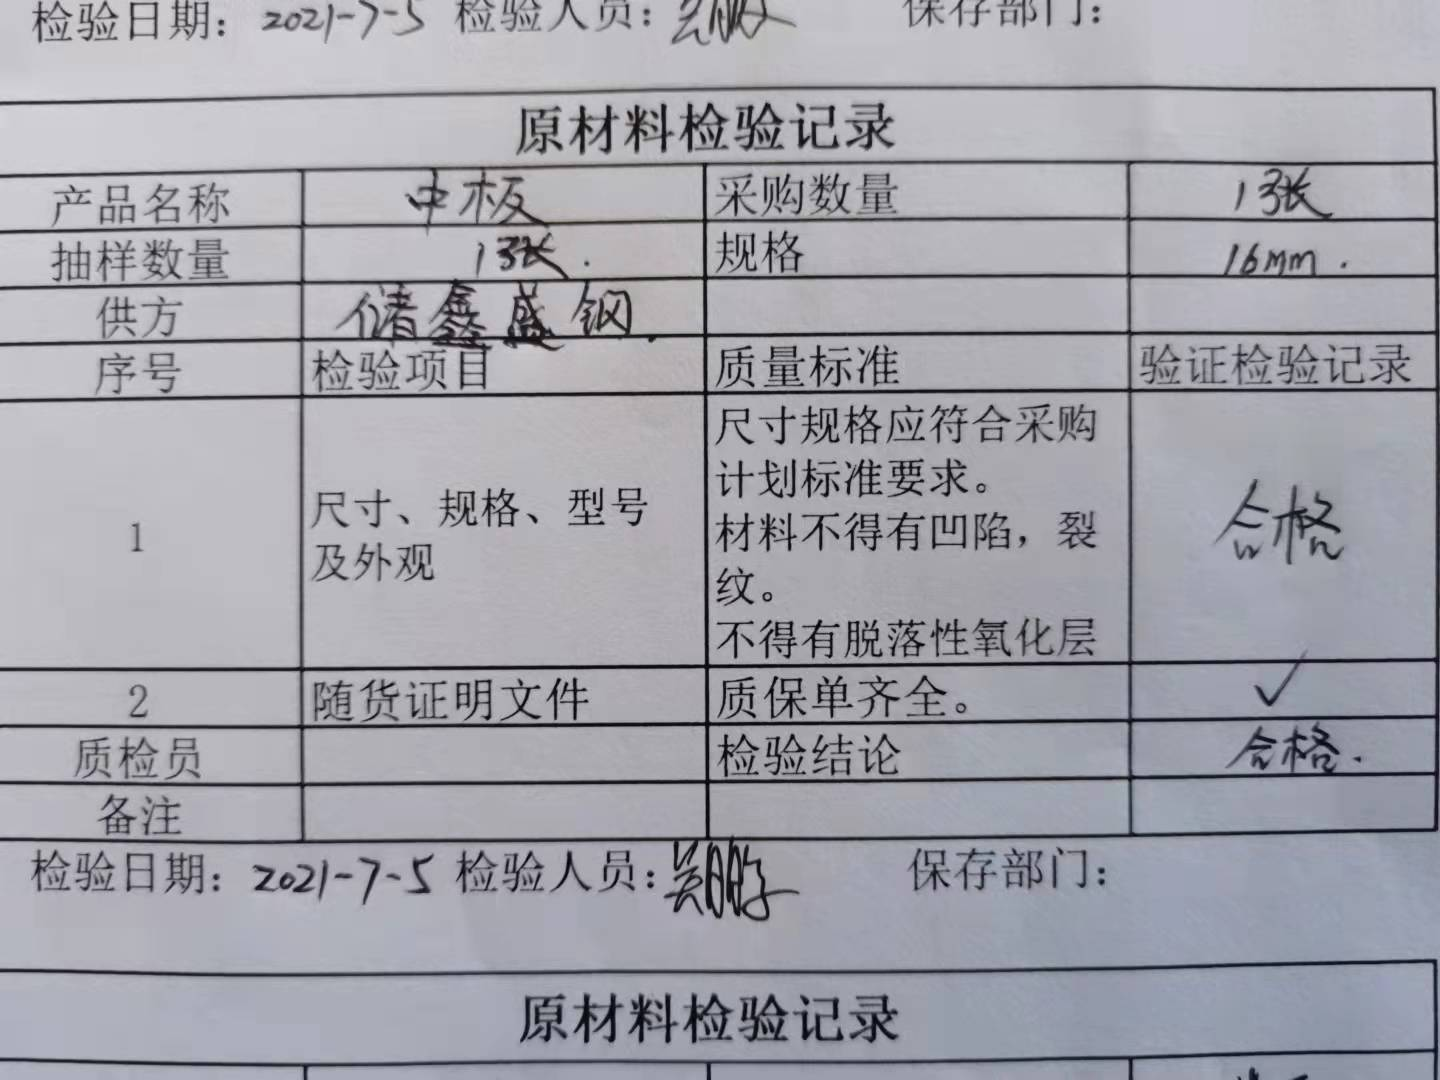 检验日期：2021-7-5 检验人员：吴鹏 保存部门：
原材料检验记录
产品名称 中板 采购数量 13张
抽样数量 13张. 规格 16mm.
供方 储鑫盛钢.
序号 检验项目 质量标准 验证检验记录
1 尺寸、规格、型号及外观 尺寸规格应符合采购
计划标准要求。
材料不得有凹陷，裂
纹。
不得有脱落性氧化层 合格
2 随货证明文件 质保单齐全。 ✓
质检员 检验结论 合格.
备注
检验日期：2021-7-5 检验人员：吴鹏 保存部门：
原材料检验记录